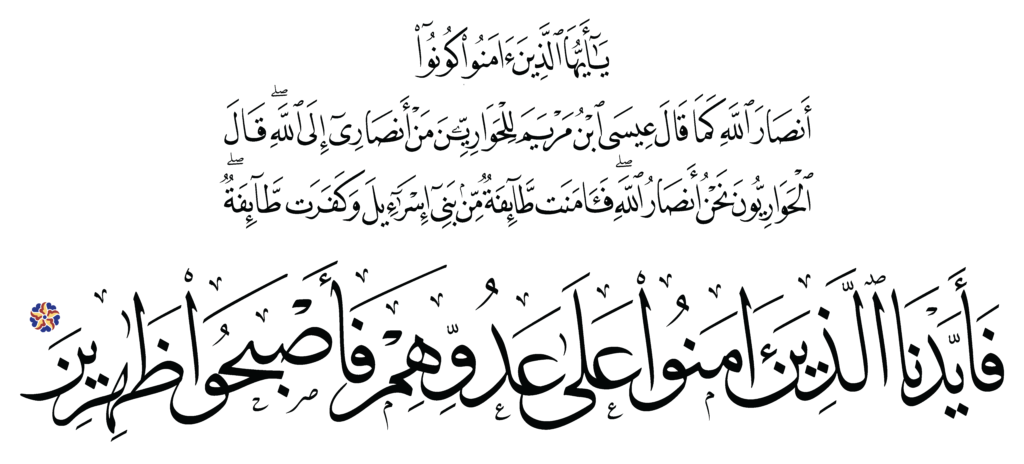 يَـٰٓأَيُّهَا ٱلَّذِينَ ءَامَنُوا۟ كُونُوٓا۟
أَنصَارَ ٱللَّهِ كَمَا قَالَ عِيسَى ٱبْنُ مَرْيَمَ لِلْحَوَارِيِّـۧنَ مَنْ أَنصَارِىٓ إِلَى ٱللَّهِ ۖ قَالَ
ٱلْحَوَارِيُّونَ نَحْنُ أَنصَارُ ٱللَّهِ ۖ فَـَٔامَنَت طَّآئِفَةٌ مِّنۢ بَنِىٓ إِسْرَٰٓءِيلَ وَكَفَرَت طَّآئِفَةٌ ۖ
فَأَيَّدْنَا ٱلَّذِينَ ءَامَنُوا۟ عَلَىٰ عَدُوِّهِمْ فَأَصْبَحُوا۟ ظَـٰهِرِينَ